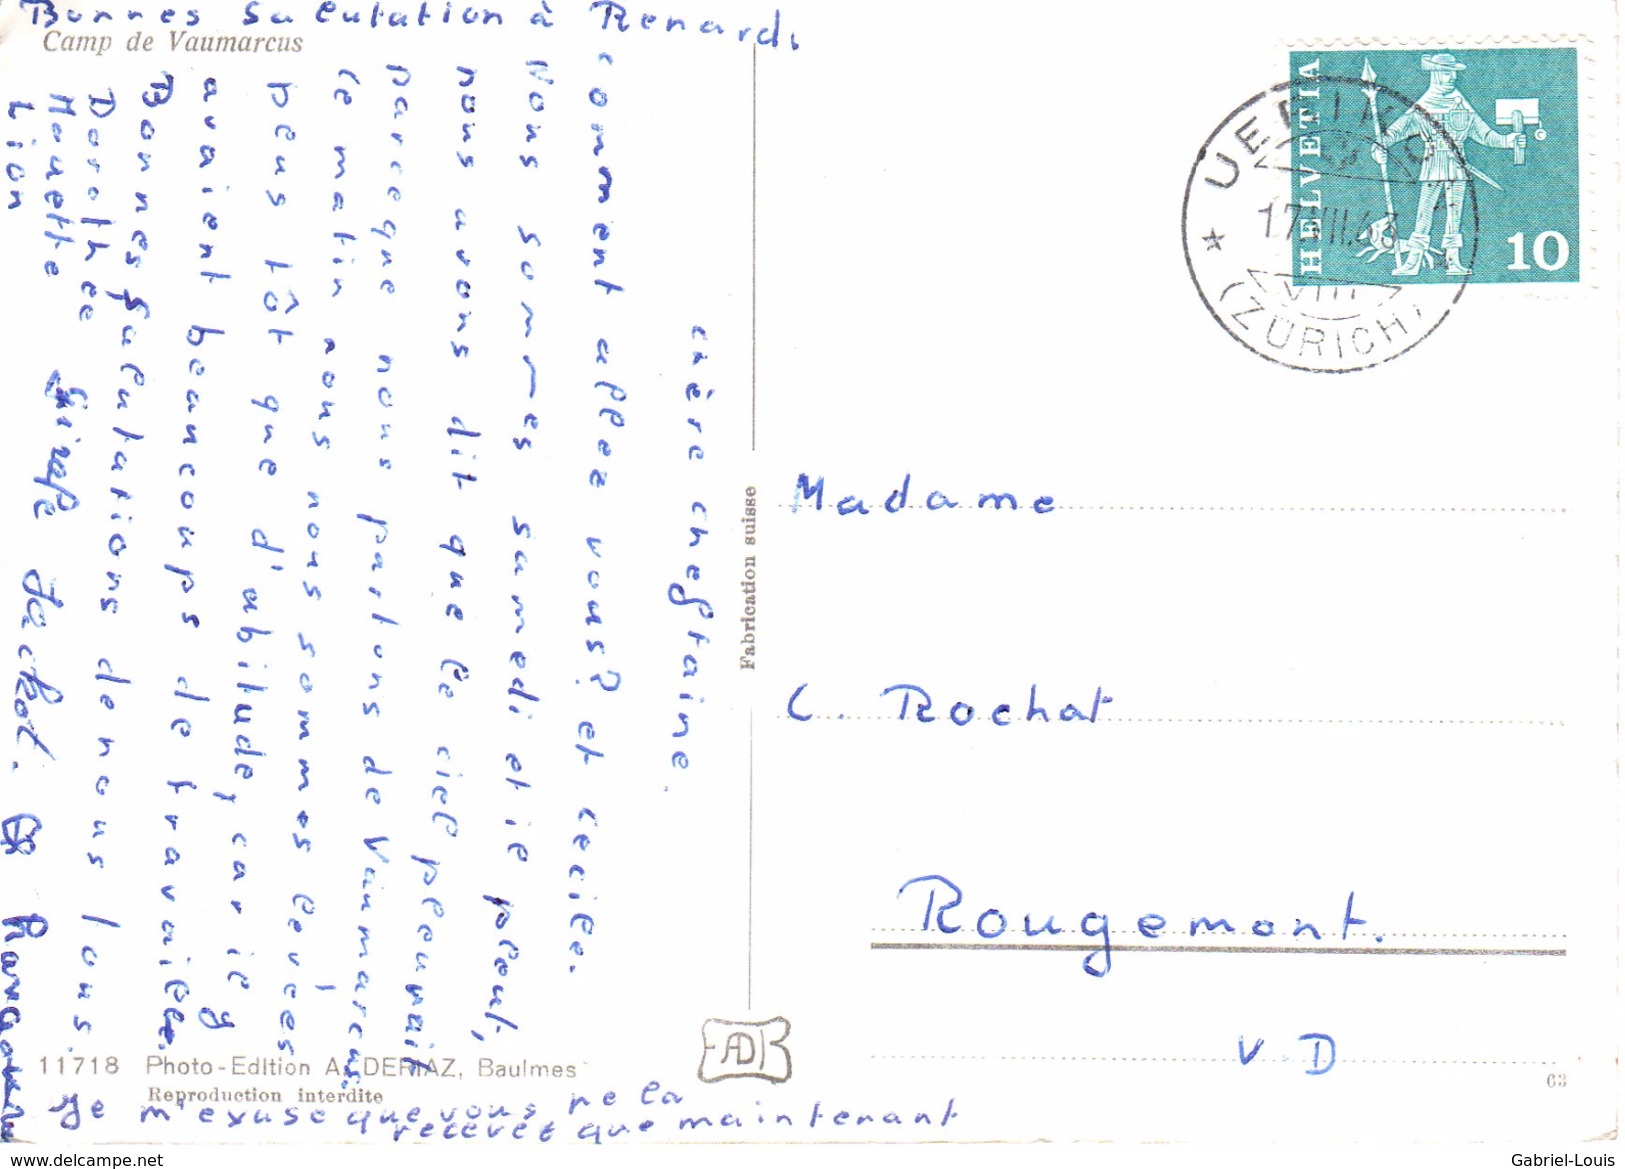 Bonnes Salutation à Renard.
Camp de Vaumarcus
chère cheftaine
comment allez vous? et cecile.
Nous sommes samedi et il pleut,
nous avons dit que le ciel pleurait
parceque nous partons de Vaumarcus.
ce matin nous nous sommes levées
peus tôt que d'abitude, car il y
avaient beaucoups de travaille.
Bonnes Salutations de nous tous.
Dorothee
Mouette Girafe Jackot.
Lion
Je m'exuse que vous ne la
recevez que maintenant
Fabrication suisse
HELVETIA
10
UERIKON
17.VIII.63
VIII
(ZÜRICH)
Madame
C. Rochat
Rougemont.
V. D
11718 Photo-Edition A. DERIAZ, Baulmes
Reproduction interdite
AD
63
www.delcampe.net
Gabriel-Louis